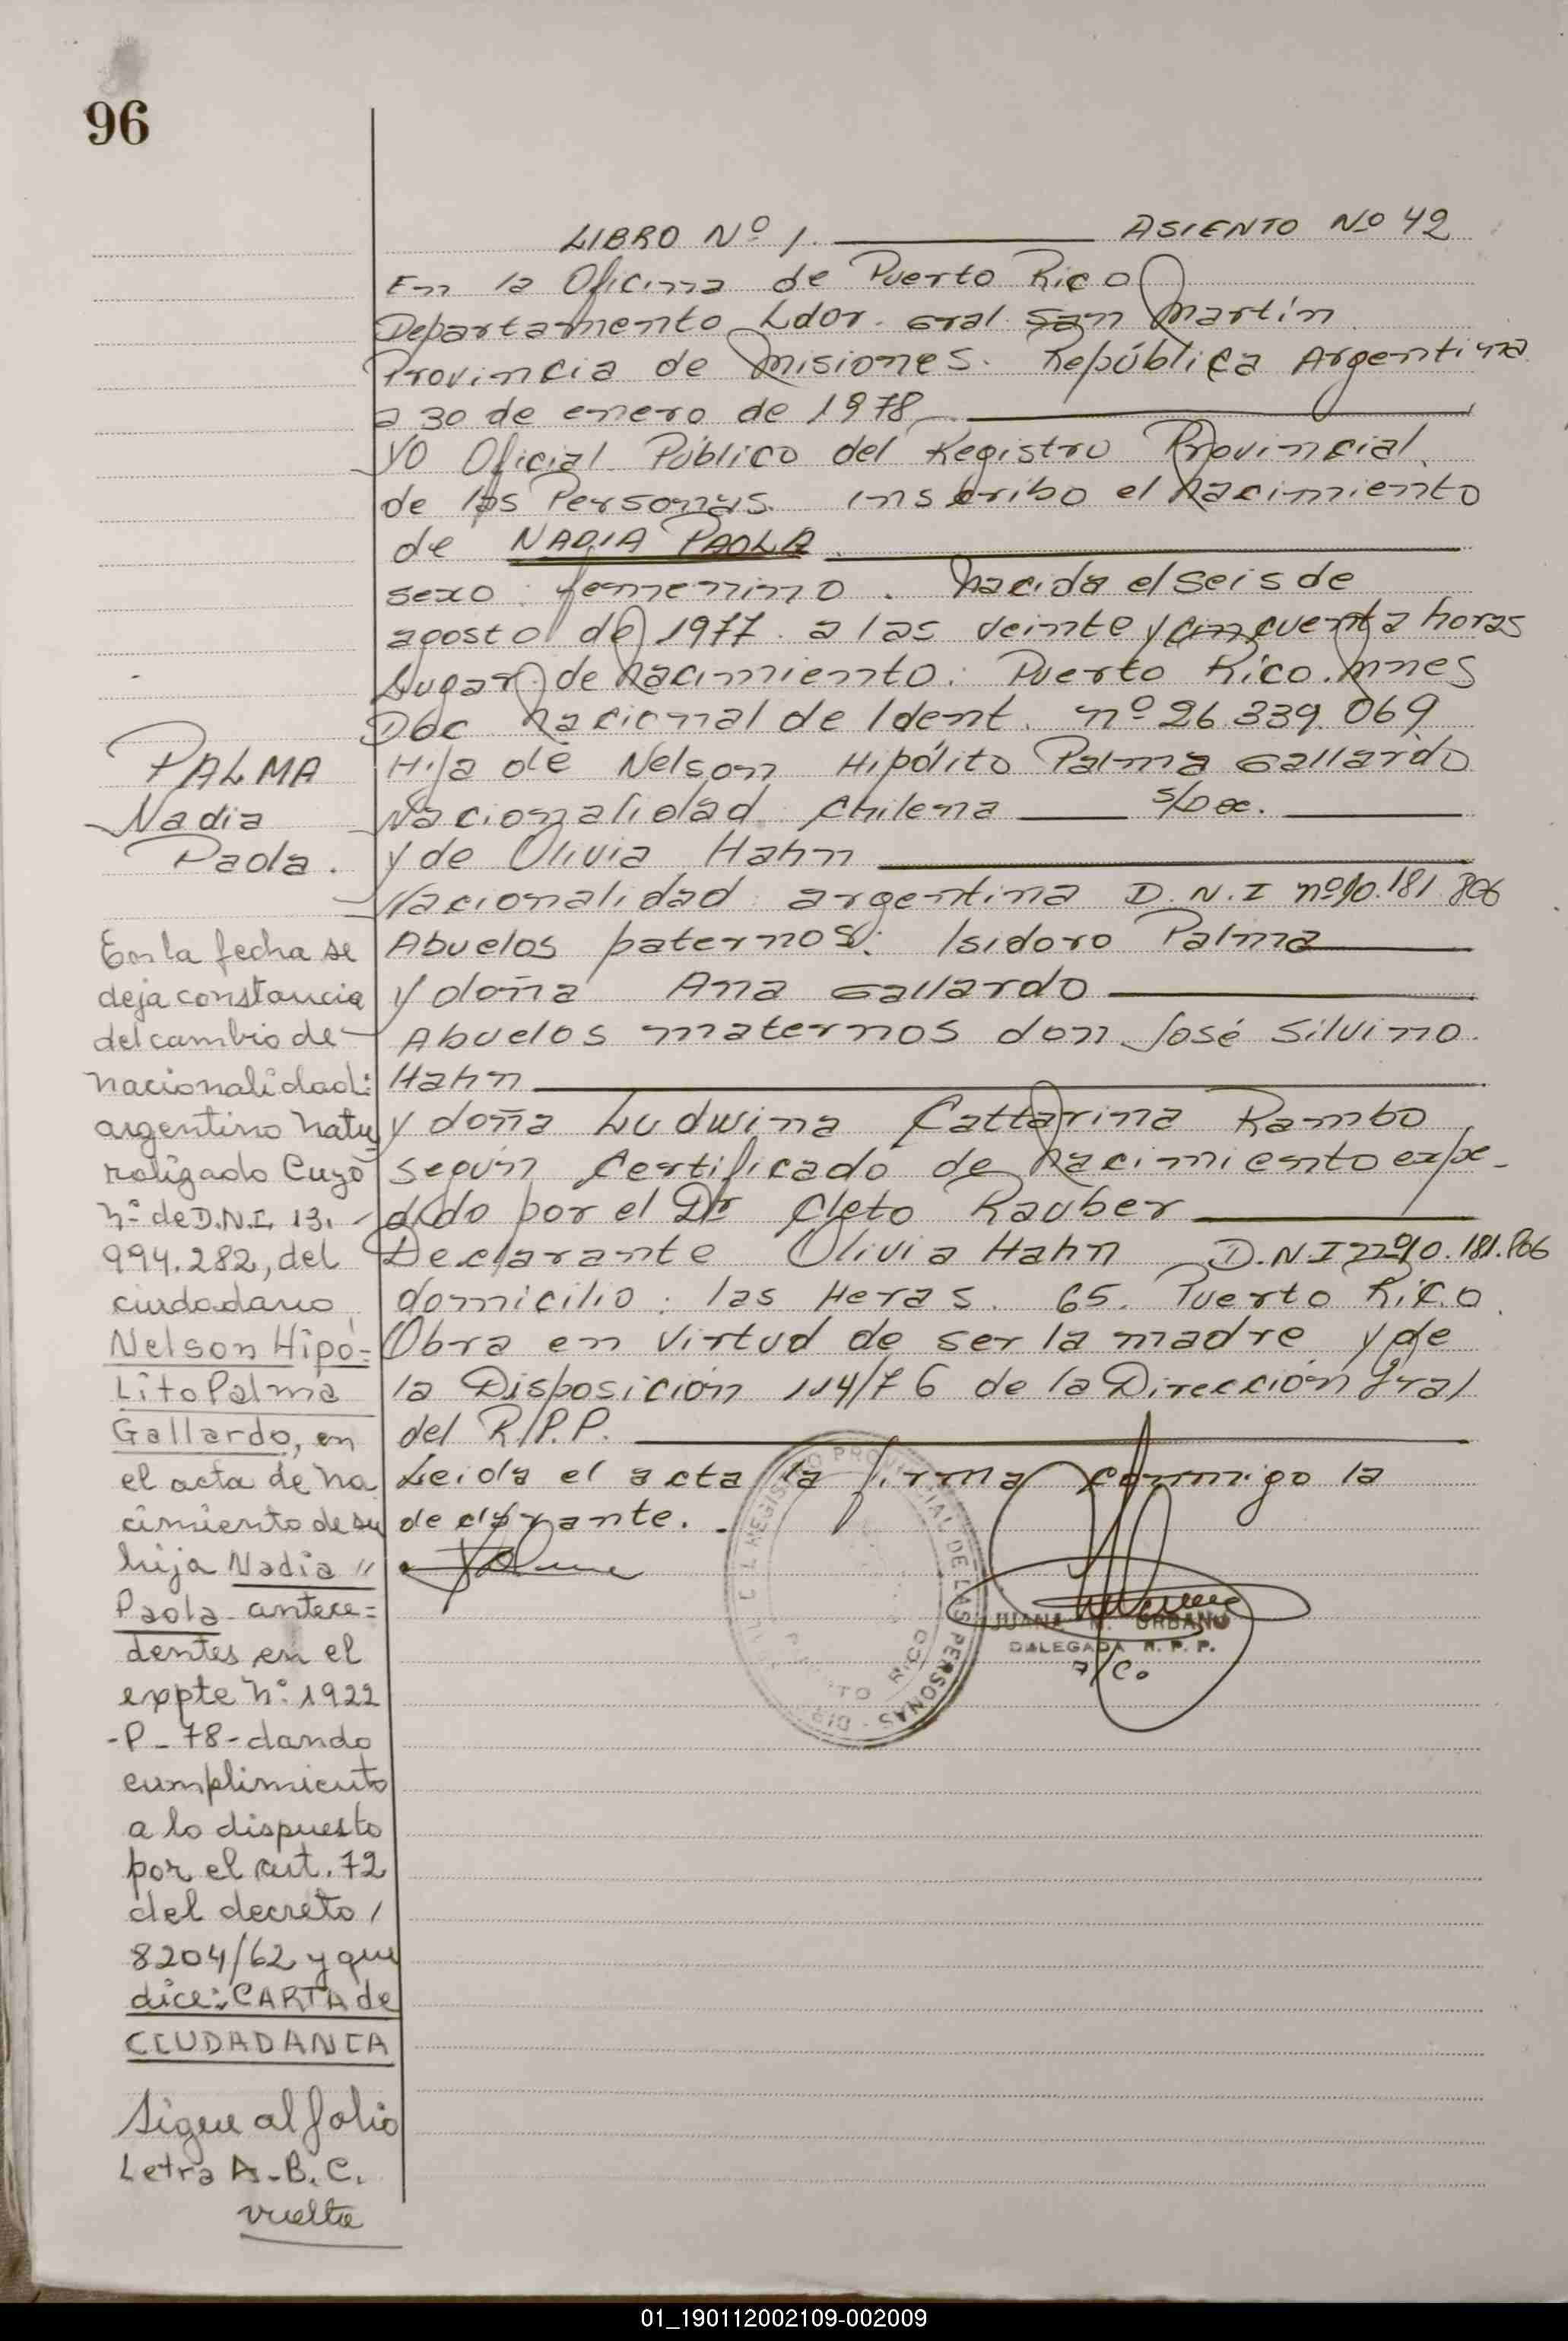 96
LIBRO Nº 1. ASIENTO Nº 42
En la Oficina de Puerto Rico
Departamento Ldor. Gral. San Martín
Provincia de Misiones. República Argentina
a 30 de enero de 1978
Yo Oficial Público del Registro Provincial
de las Personas. inscribo el nacimiento
de NADIA PAOLA.
sexo: femenino. nacida el seis de
agosto de 1977. a las veinte y cincuenta horas
Lugar de nacimiento: Puerto Rico. Mnes
Doc Nacional de Ident. nº 26.339.069
Hija de Nelson Hipólito Palma Gallardo
Nacionalidad Chilena s/Doc.
y de Olivia Hahn
Nacionalidad: argentina D.N.I nº 10.181.806
Abuelos paternos: Isidoro Palma
y doña Ana Gallardo
Abuelos maternos don José Silvino
Hahn
y doña Ludwina Cattarina Rambo
según Certificado de nacimiento expe-
dido por el Dr Cleto Rauber
Declarante Olivia Hahn D.N.I nº 10.181.806
domicilio: las Heras. 65. Puerto Rico.
Obra en virtud de ser la madre y de
la Disposición 114/76 de la Dirección Gral
del R.P.P.
Leida el acta la firma conmigo la
declarante.
PALMA
Nadia
Paola.
En la fecha se
deja constancia
del cambio de
nacionalidad:
argentino natu
ralizado Cuyo
nº de D.N.I. 13.
994.282, del
ciudadano
Nelson Hipó=
Lito Palma
Gallardo, en
el acta de na
cimiento de su
hija Nadia "
Paola antece=
dentes en el
expte nº 1922
-P-78-dando
cumplimiento
a lo dispuesto
por el art. 72
del decreto /
8204/62 y que
dice: CARTA de
CIUDADANIA
Sigue al folio
Letra A-B.C.
vuelta
REGISTRO PROVINCIAL DE LAS PERSONAS - DIR
PUERTO RICO
JUANA M. URBANO
DALEGADA R. P. P.
a/c.
01_190112002109-002009